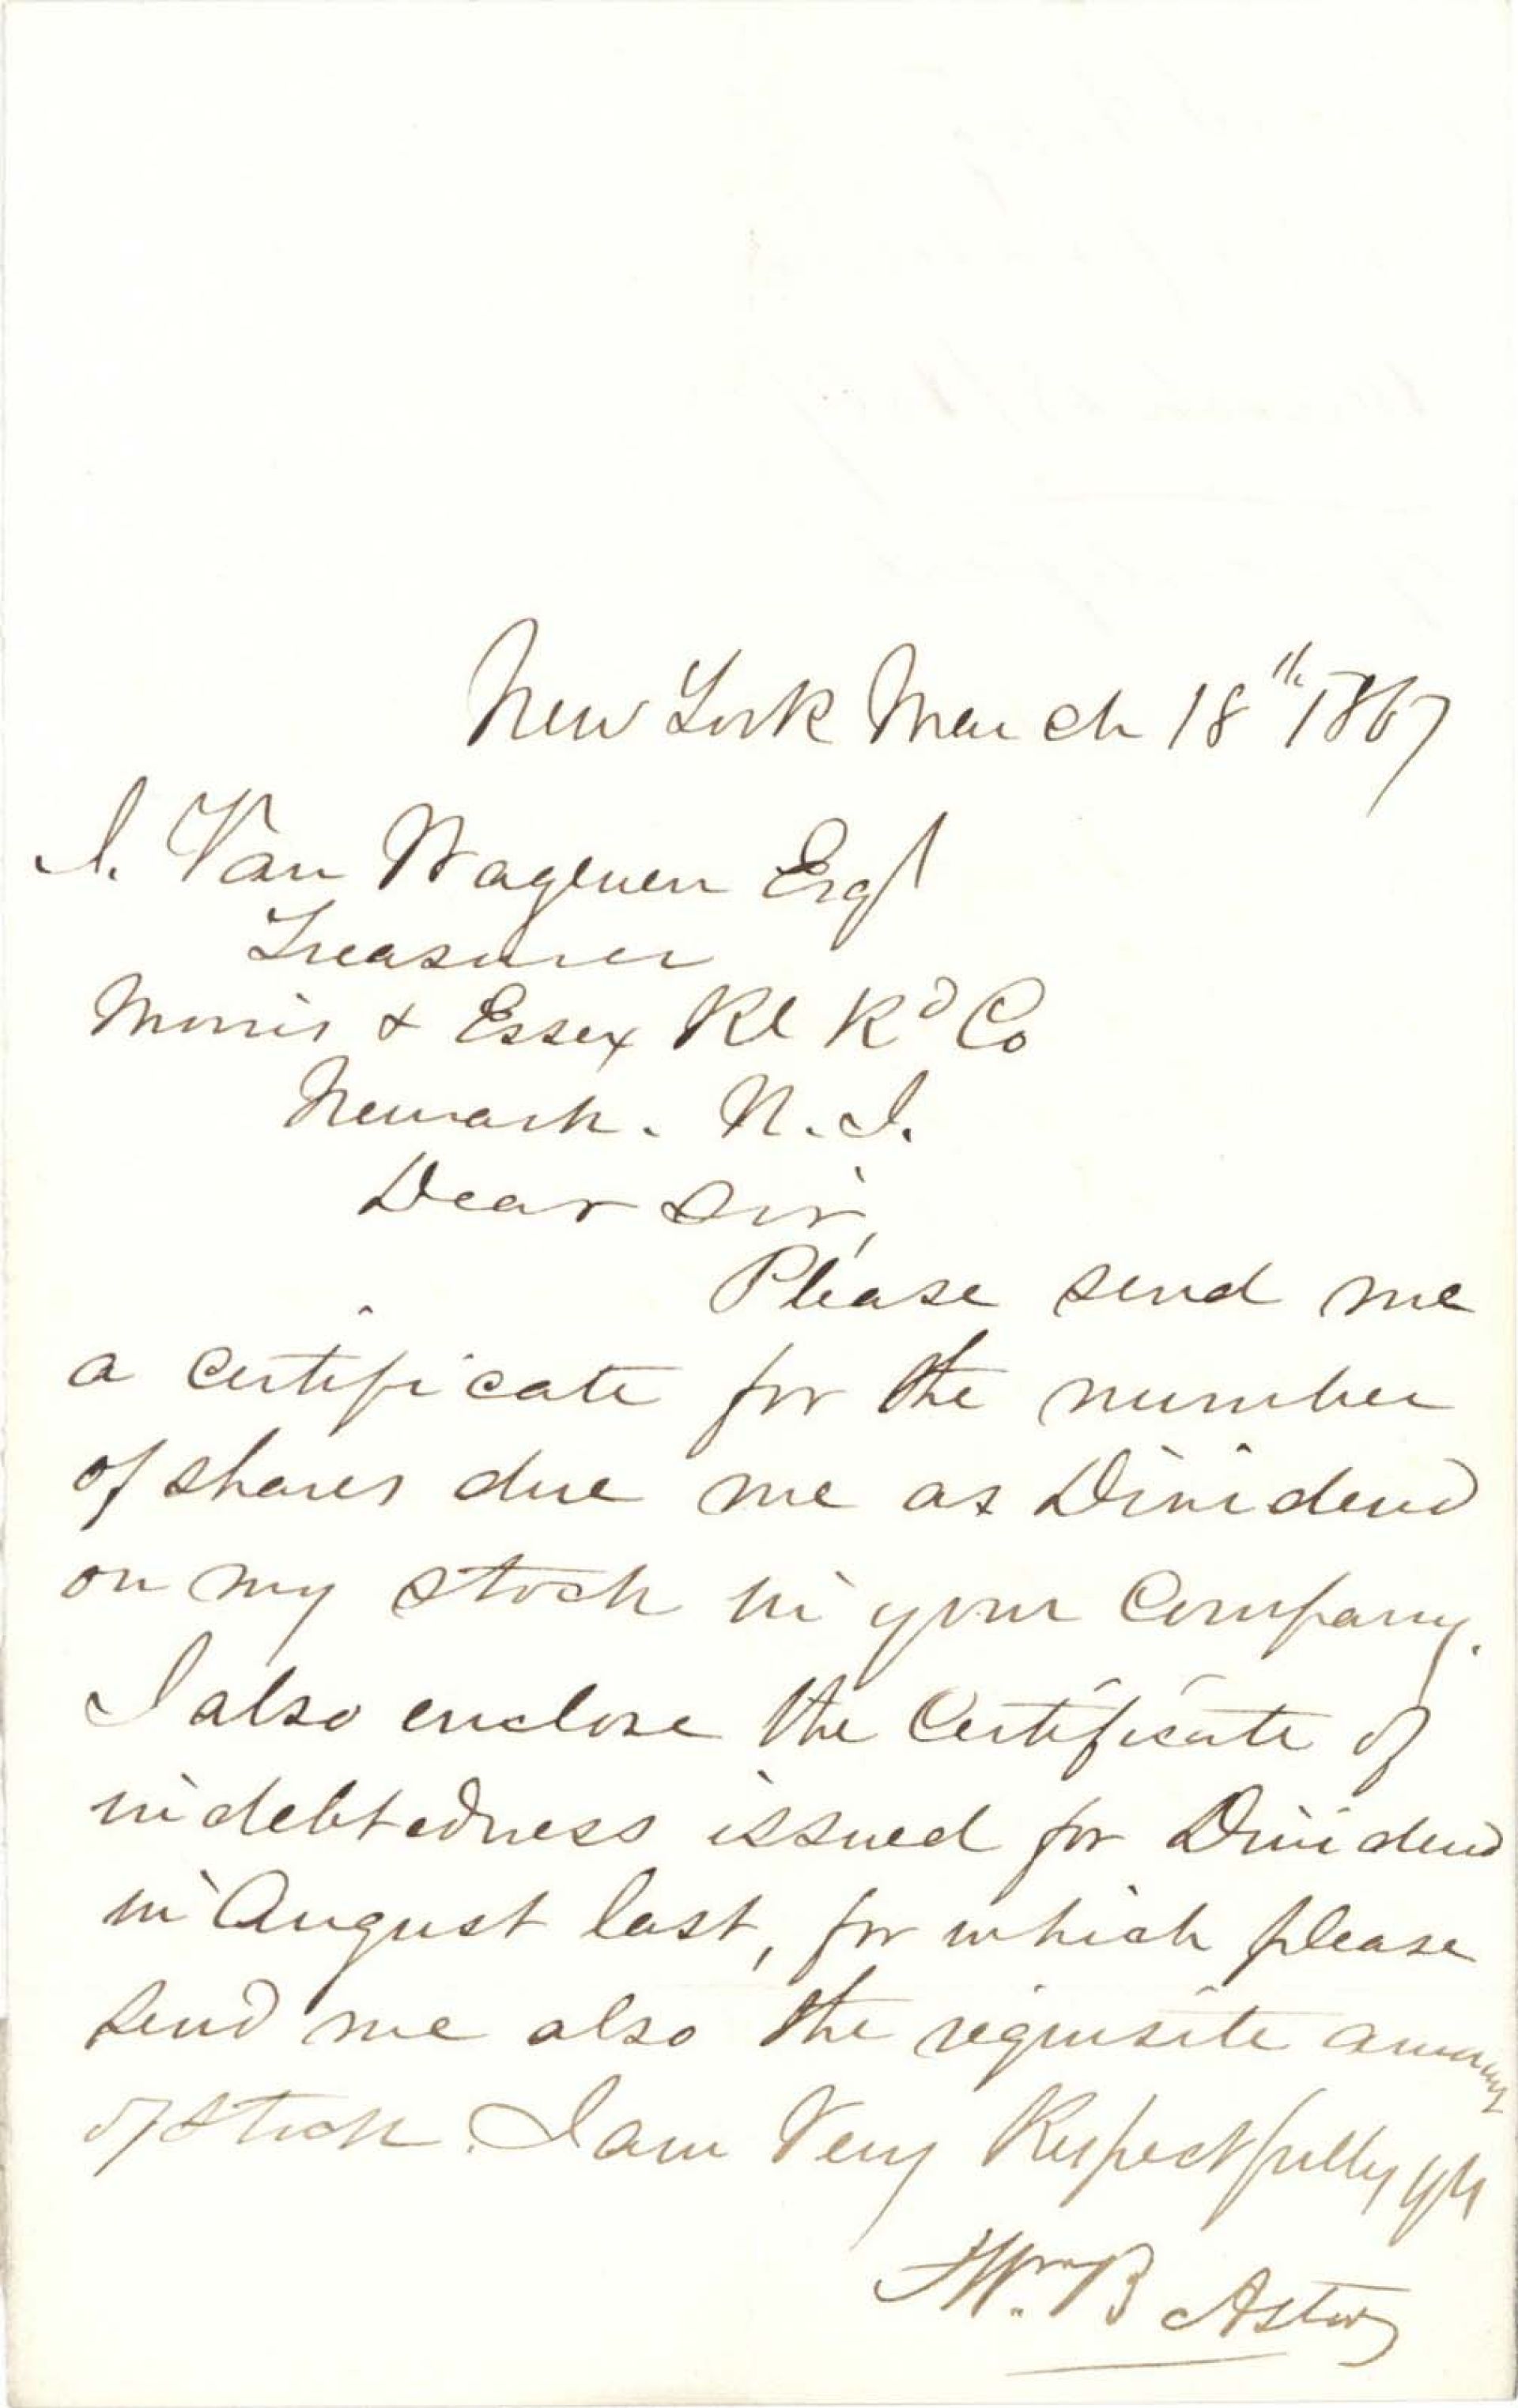 New York March 18th 1867
I. Van Wagenen Esqr
Treasurer
Morris & Essex Rl Rd Co
Newark. N. J.
Dear Sir,
Please send me
a certificate for the number
of shares due me as Dividend
on my stock in your Company.
I also enclose the Certificate of
indebtedness issued for Dividend
in August last, for which please
send me also the requisite amount
of stock. I am Very Respectfully yrs
Wm. B Astor